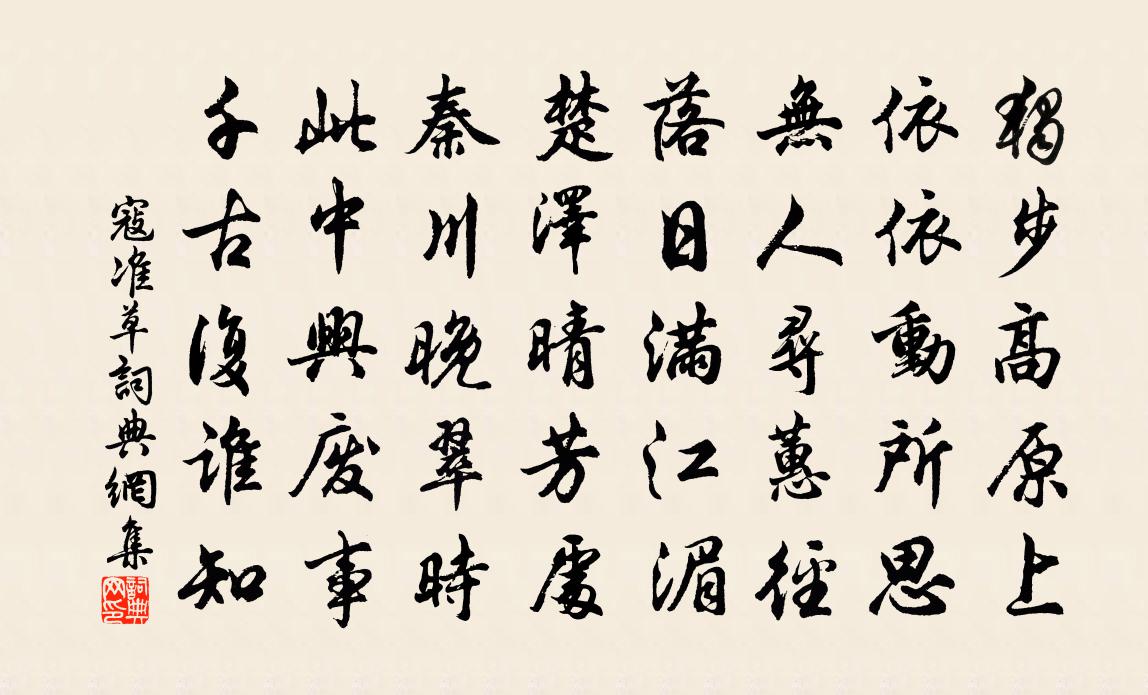 獨步高原上
依依動所思
無人尋蕙徑
落日滿江湄
楚澤晴芳處
秦川晚翠時
此中興廢事
千古復誰知
寇准草詞典網集
詞典网印